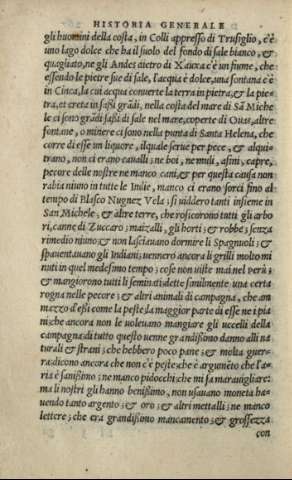 HISTORIA GENERALE
gli huomini della costa, in Colli appresso di Trusiglio, c'è
uno lago dolce che ha il suolo del fondo di sale bianco, &
quagliato, ne gli Andes dietro di Xauxa c'è un fiume, che
essendo le pietre sue di sale, l'acqua è dolce, una fontana c'è
in Cinca, la cui acqua converte la terra in pietra, & la pie-
tra, et creta in sassi grādi, nella costa del mare di Sā Miche
le ci sono grādi sassi di sale nel mare, coperte di Ovas, altre
fontane, o minere ci sono nella punta di Santa Helena, che
corre di esse un liquore, ilquale serve per pece, & alqui-
trano, non ci erano cavalli; ne boi, ne muli, asini, capre,
pecore delle nostre ne manco cani, & per questa causa non
rabia niuno in tutte le Indie, manco ci erano sorci fino al
tempo di Blasco Nugnez Vela; si viddero tanti insieme in
San Michele; & altre terre, che rosicorono tutti gli arbo
ri, canne di Zuccaro; maizalli, gli horti; & robbe; senza
rimedio niuno; & non lasciavano dormire li Spagnuoli; &
spaventavano gli Indiani; vennero ancora li grilli molto mi
nuti in quel medesimo tempo; cose non viste mai nel però;
& mangiorono tutti li seminati; dette similmente una certa
rogna nelle pecore; & altri animali di campagna, che am
mazzo d'essi come la peste, la maggior parte di esse ne i pia
ni; che ancora non le volevano mangiare gli uccelli della
campagna; di tutto questo venne grandissimo danno alli na
turali & strani; che hebbero poco pane; & molta guer-
ra: dicono ancora che non c'è peste; che è argumēto che l'a-
ria è sanissimo; ne manco pidocchi; che mi fa maravigliare:
ma li nostri gli hanno benissimo, non usavano moneta ha-
vendo tanto argento; & oro; & altri mettalli; ne manco
lettere; che era grandissimo mancamento; & grossezza
con